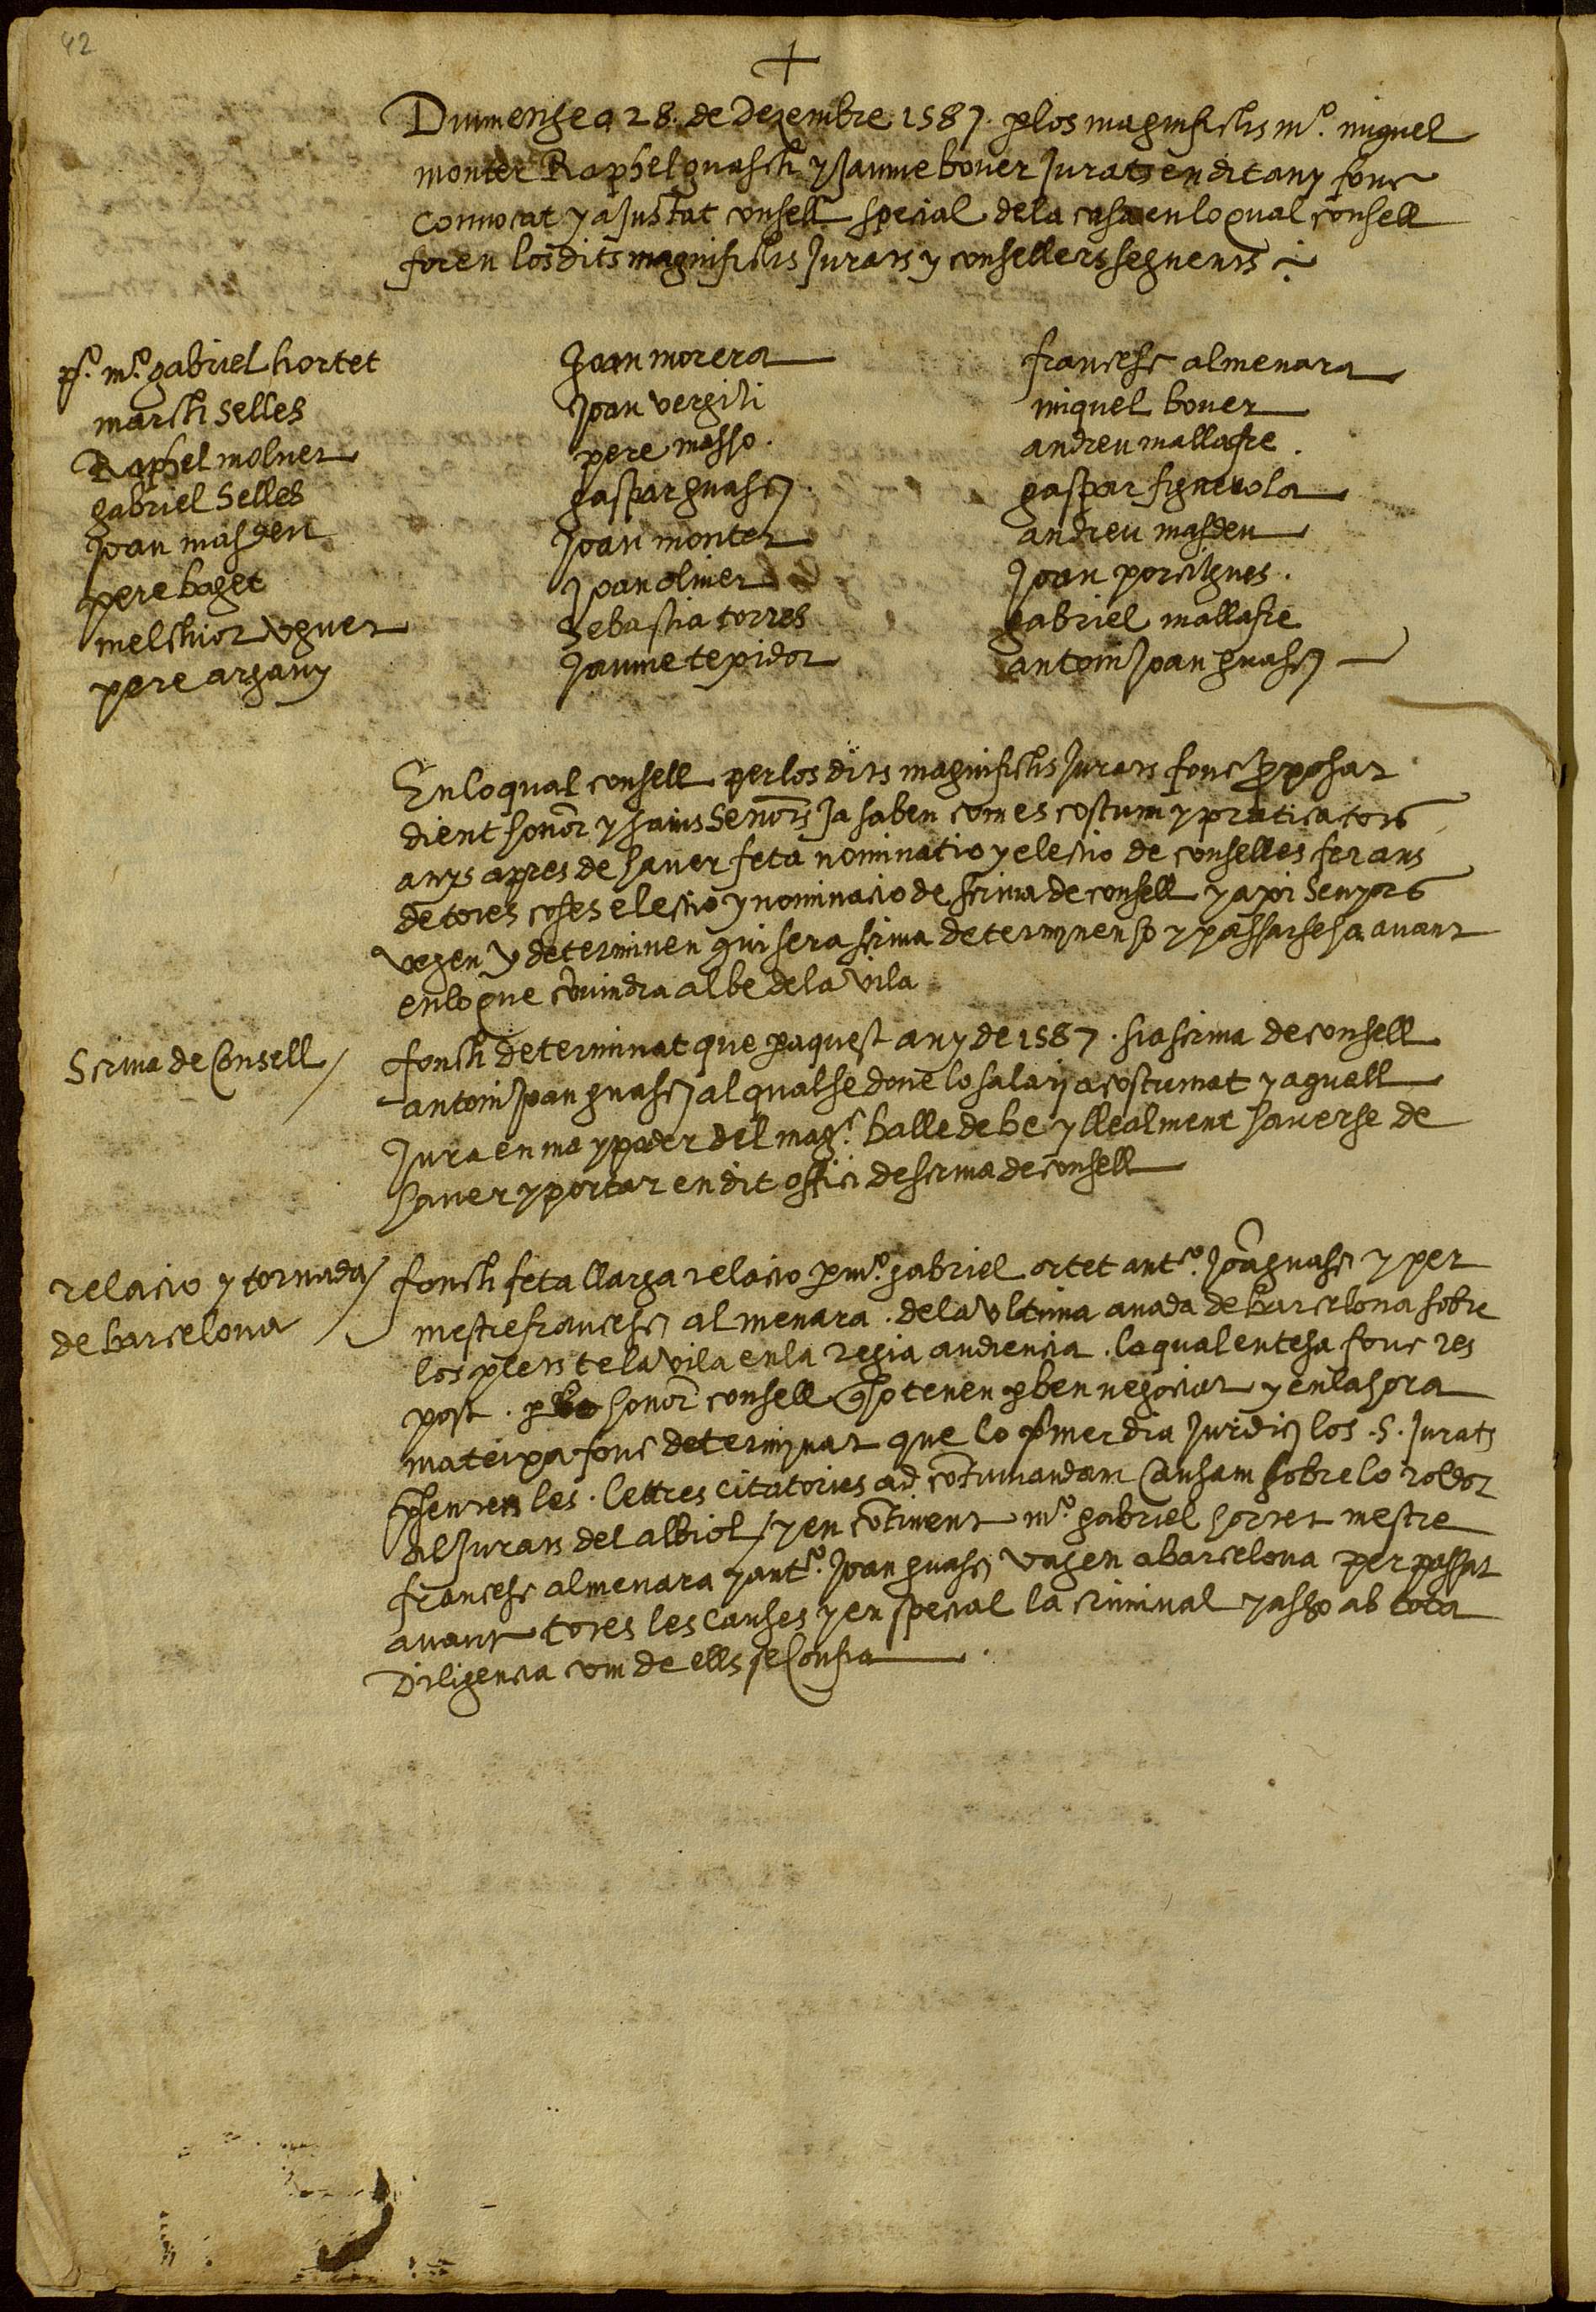 42
+
Diumenge a 28. de Dezembre 1587. p los magnifichs m.º miquel
monter Raphel guasch y Jaume bover Jurats en dit any fonc
convocat y aJustat consell special de la casa en lo qual consell
foren los dits magnifichs Jurats y consellers seguents
p.º m.º gabriel hortet
march selles
Raphel molner
gabriel selles
Joan masdeu
pere baget
melchior veguer
pere argany
Joan morera
Joan vergili
pere masso.
gaspar guasch
Joan monter
Joan oliver
Sebastia torres
Jaume texidor
francesc almenara
miquel bover
andreu mallafre.
gaspar figuerola
andreu masdeu
Joan porcihgues.
gabriel mallafre
antoni Joan guasch
En lo qual consell per los dits magnifichs Jurats fonc pposat
dient honor y savis Senors Ja saben com es costum y pratica tots
anys apres de haver feta nominatio y elessio de conselles fer ans
de totes coses elessio y nominacio de scriva de consell y axi senyors
vegen y determinen qui sera scriva determinenso y passarseha avant
en lo que covindra al be de la vila
Scriva de Consell /
fonch determinat que p aquest any de 1587. sia scriva de consell
antoni Joan guasch al qual se done lo salari acostumat y aquell
Jura en ma y poder del mag.ch balle de be y llealment haverse de
haver y portar en dit offici de scriva de consell
relacio y tornada /
de barcelona /
fonch feta llarga relacio p m.º gabriel ortet ant.º Joã guasch y per
mestre francesch almenara. de la ultima anada de barcelona sobre
los plets te la vila en la regia audiencia. la qual entesa fonc res
post. p lo honor consell ho tenen p ben negociat y en la hora
mateixa fonc determinat que lo pmer dia Juridich los .S. Jurats
psenten les. lettres citatories ad continuandam Causam sobre lo roldor
als Jurats del albiol / y en continent m.º gabriel hortet mestre
francesc almenara y ant.º Joan guasch vagen a barcelona per passar
avant totes les causes y en special la criminal y asso ab tota
Diligencia com de ells se Confia